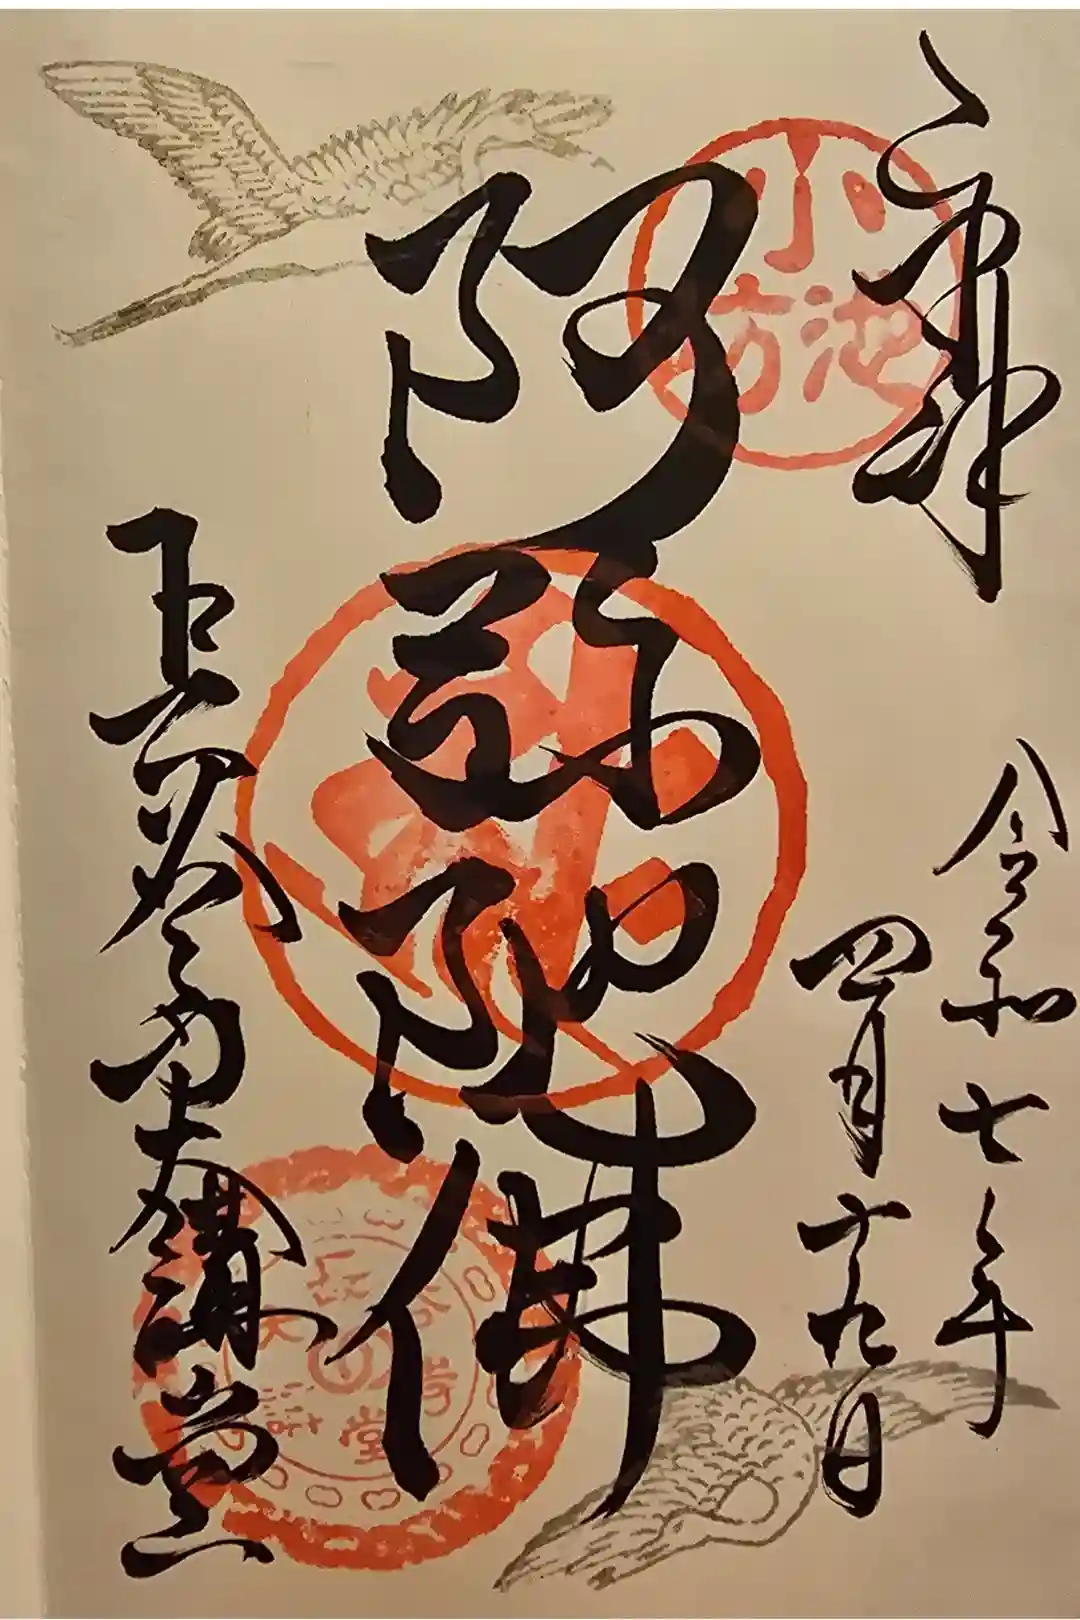 奉拝
小池坊
令和七年
四月十九日
阿弥陀佛
長谷寺大講堂